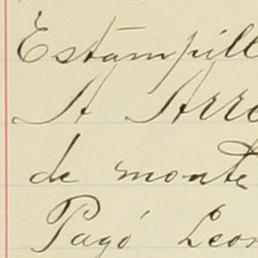 Estampill
A Arre
de monte
Pagó Leon